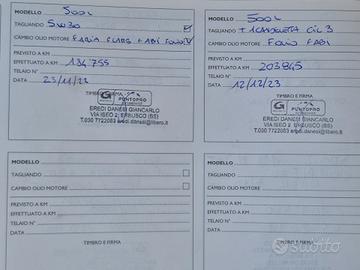 MODELLO 500L
TAGLIANDO 5W30
CAMBIO OLIO MOTORE
PREVISTO A KM
EFFETTUATO A KM 134755
TELAIO N°
DATA 23/11/22
TIMBRO E FIRMA
PUNTOPRO
EREDI DANESI GIANCARLO
VIA ISEO 2, ERBUSCO (BS)
T.030 7722083
MODELLO 500L
TAGLIANDO + 1 CANDELETTA CIL 3
CAMBIO OLIO MOTORE
PREVISTO A KM
EFFETTUATO A KM 203845
TELAIO N°
DATA 12/12/23
TIMBRO E FIRMA
PUNTOPRO
EREDI DANESI GIANCARLO
VIA ISEO 2, ERBUSCO (BS)
T.030 7722083
MODELLO
TAGLIANDO
CAMBIO OLIO MOTORE
PREVISTO A KM
EFFETTUATO A KM
TELAIO N°
DATA
TIMBRO E FIRMA
MODELLO
TAGLIANDO
CAMBIO OLIO MOTORE
PREVISTO A KM
EFFETTUATO A KM
TELAIO N°
DATA
TIMBRO E FIRMA
subito